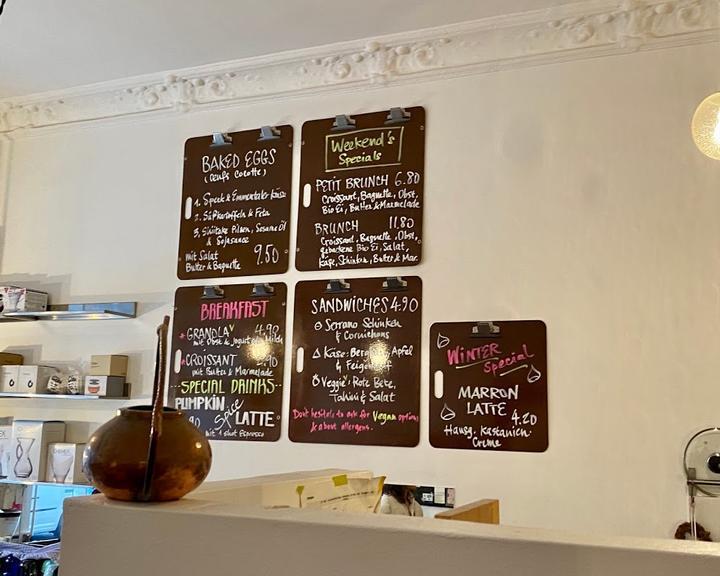 BAKED EGGS
(Oeufs Cocotte)
1. Speck & Emmentaler Käse
2. Süßkartoffeln & Feta
3. Shiitake Pilzen, Sesamöl
& Sojasauce
mit Salat
Butter & Baguette 9.50
Weekend's
Specials
PETIT BRUNCH 6.80
Croissant, Baguette, Obst,
Bio Ei, Butter & Marmelade
BRUNCH 11.80
Croissant, Baguette, Obst,
gebackene Bio Ei, Salat,
Käse, Schinken, Butter & Mar.
BREAKFAST
GRANOLA V 4.90
mit Obst & Jogurt Milch
CROISSANT 3.90
mit Butter & Marmelade
SPECIAL DRINKS
PUMPKIN
Spice
LATTE
mit 1 shot Espresso
SANDWICHES 4.90
Serrano Schinken
& Cornichons
Käse: Apfel
& Feigensenf
Veggie: Rote Bete,
Tahini & Salat
Don't hesitate to ask for Vegan options
& about allergens.
WINTER
Special
MARRON
LATTE 4.20
Hausg. Kastanien-
Creme